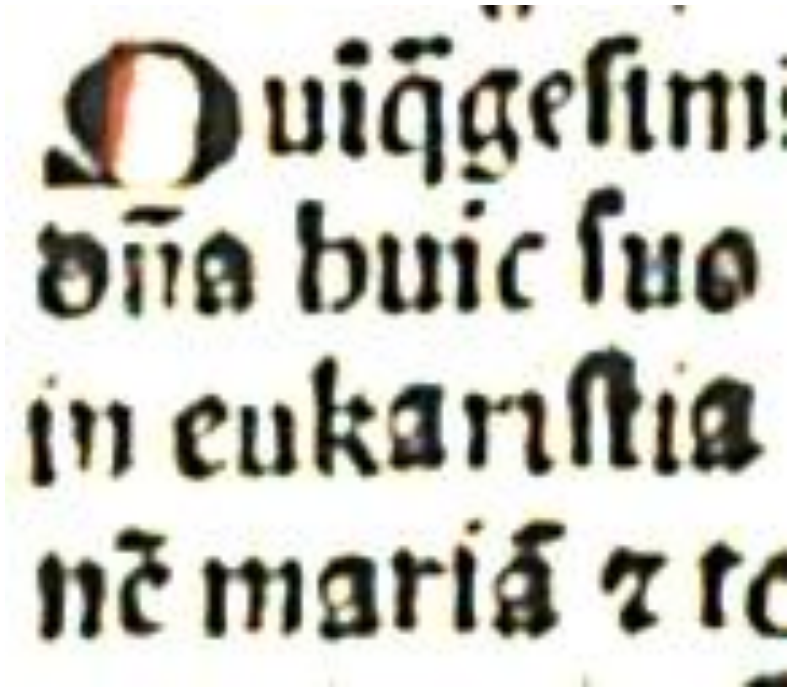 Quiq̄geſim
dn̄a huic ſuo
in eukariſtia
nc̄ mariā ⁊ to